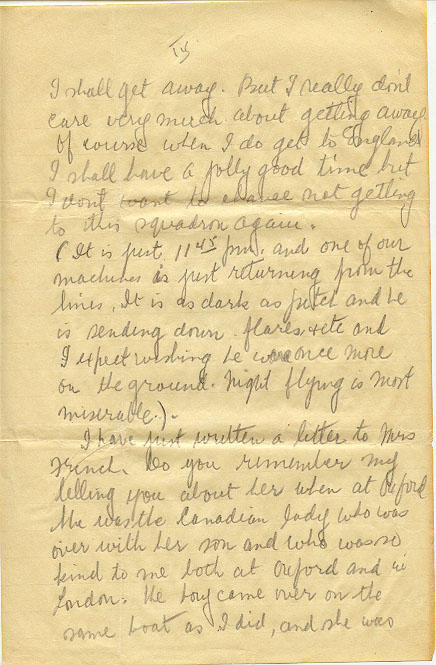 IV
I shall get away. But I really don't
care very much about getting away.
Of course when I do get to England
I shall have a jolly good time but
I don't want to chance not getting
to this squadron again.
(It is just 11 45 pm. and one of our
machines is just returning from the
lines. It is as dark as pitch and he
is sending down flares & etc and
I expect wishing he were once more
on the ground. Night flying is most
miserable.).
I have just written a letter to Mrs
French. Do you remember my
telling you about her when at Oxford
She was the Canadian lady who was
over with her son and who was so
kind to me both at Oxford and in
London. The boy came over on the
same boat as I did, and she was